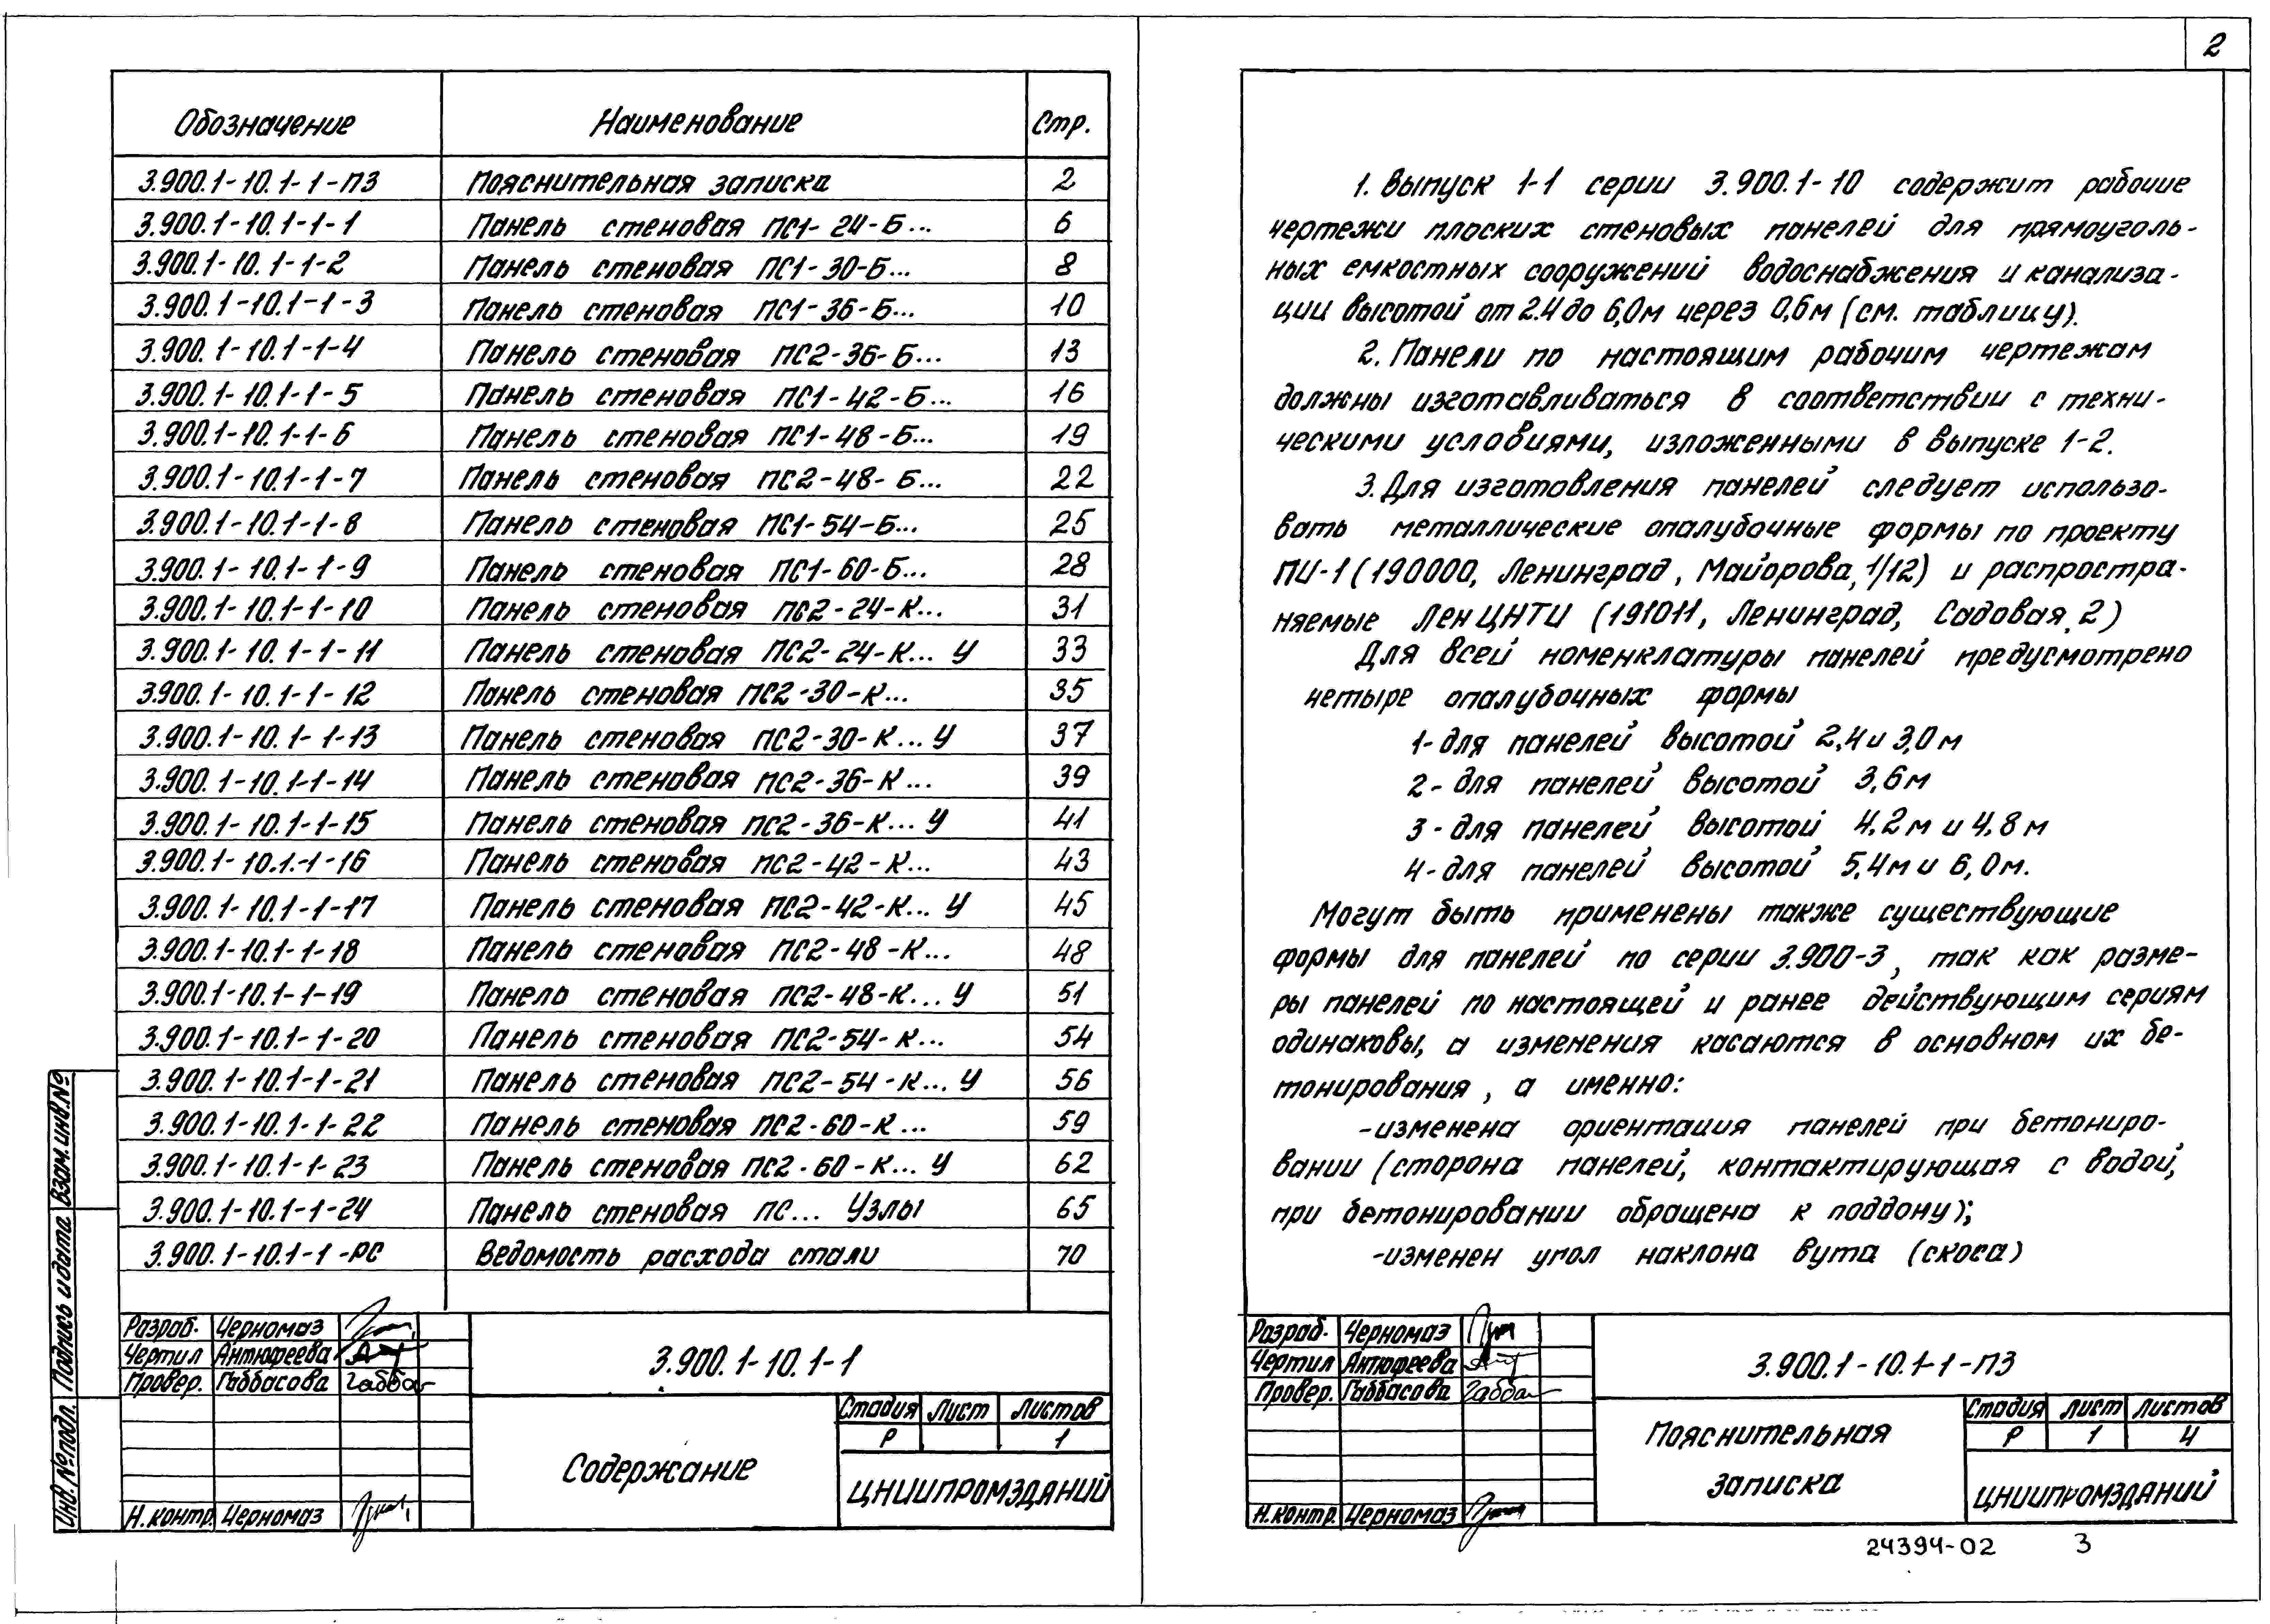 Обозначение Наименование Стр.
3.900.1-10.1-1-ПЗ Пояснительная записка 2
3.900.1-10.1-1-1 Панель стеновая ПС1-24-Б... 6
3.900.1-10.1-1-2 Панель стеновая ПС1-30-Б... 8
3.900.1-10.1-1-3 Панель стеновая ПС1-36-Б... 10
3.900.1-10.1-1-4 Панель стеновая ПС2-36-Б... 13
3.900.1-10.1-1-5 Панель стеновая ПС1-42-Б... 16
3.900.1-10.1-1-6 Панель стеновая ПС1-48-Б... 19
3.900.1-10.1-1-7 Панель стеновая ПС2-48-Б... 22
3.900.1-10.1-1-8 Панель стеновая ПС1-54-Б... 25
3.900.1-10.1-1-9 Панель стеновая ПС1-60-Б... 28
3.900.1-10.1-1-10 Панель стеновая ПС2-24-К... 31
3.900.1-10.1-1-11 Панель стеновая ПС2-24-К... У 33
3.900.1-10.1-1-12 Панель стеновая ПС2-30-К... 35
3.900.1-10.1-1-13 Панель стеновая ПС2-30-К... У 37
3.900.1-10.1-1-14 Панель стеновая ПС2-36-К... 39
3.900.1-10.1-1-15 Панель стеновая ПС2-36-К... У 41
3.900.1-10.1.-1-16 Панель стеновая ПС2-42-К... 43
3.900.1-10.1-1-17 Панель стеновая ПС2-42-К... У 45
3.900.1-10.1-1-18 Панель стеновая ПС2-48-К... 48
3.900.1-10.1-1-19 Панель стеновая ПС2-48-К... У 51
3.900.1-10.1-1-20 Панель стеновая ПС2-54-К... 54
3.900.1-10.1-1-21 Панель стеновая ПС2-54-К... У 56
3.900.1-10.1-1-22 Панель стеновая ПС2-60-К... 59
3.900.1-10.1-1-23 Панель стеновая ПС2-60-К... У 62
3.900.1-10.1-1-24 Панель стеновая ПС... Узлы 65
3.900.1-10.1-1-РС Ведомость расхода стали 70
Разраб. Черномаз
Чертил Антюфеева
Провер. Габбасова Габбас
Н.контр. Черномаз
3.900.1-10.1-1
Содержание
Стадия Лист Листов
Р 1
ЦНИИПРОМЗДАНИЙ
Инв.№подл. Подпись и дата Взам.инв.№
2
1. Выпуск 1-1 серии 3.900.1-10 содержит рабочие
чертежи плоских стеновых панелей для прямоуголь-
ных емкостных сооружений водоснабжения и канализа-
ции высотой от 2.4 до 6,0м через 0,6м (см. таблицу).
2. Панели по настоящим рабочим чертежам
должны изготавливаться в соответствии с техни-
ческими условиями, изложенными в выпуске 1-2.
3. Для изготовления панелей следует использо-
вать металлические опалубочные формы по проекту
ПИ-1 (190000, Ленинград, Майорова, 1/12) и распростра-
няемые ЛенЦНТИ (191011, Ленинград, Садовая, 2)
Для всей номенклатуры панелей предусмотрено
четыре опалубочных формы
1- для панелей высотой 2,4 и 3,0 м
2- для панелей высотой 3,6м
3- для панелей высотой 4,2м и 4,8м
4- для панелей высотой 5,4м и 6,0м.
Могут быть применены также существующие
формы для панелей по серии 3.900-3, так как разме-
ры панелей по настоящей и ранее действующим сериям
одинаковы, а изменения касаются в основном их бе-
тонирования, а именно:
-изменена ориентация панелей при бетониро-
вании (сторона панелей, контактирующая с водой,
при бетонировании обращена к поддону);
-изменен угол наклона вута (скоса)
Разраб. Черномаз
Чертил Антюфеева
Провер. Габбасова Габбас
Н.контр. Черномаз
3.900.1-10.1-1-ПЗ
Пояснительная
записка
Стадия Лист Листов
Р 1 4
ЦНИИПРОМЗДАНИЙ
24394-02 3